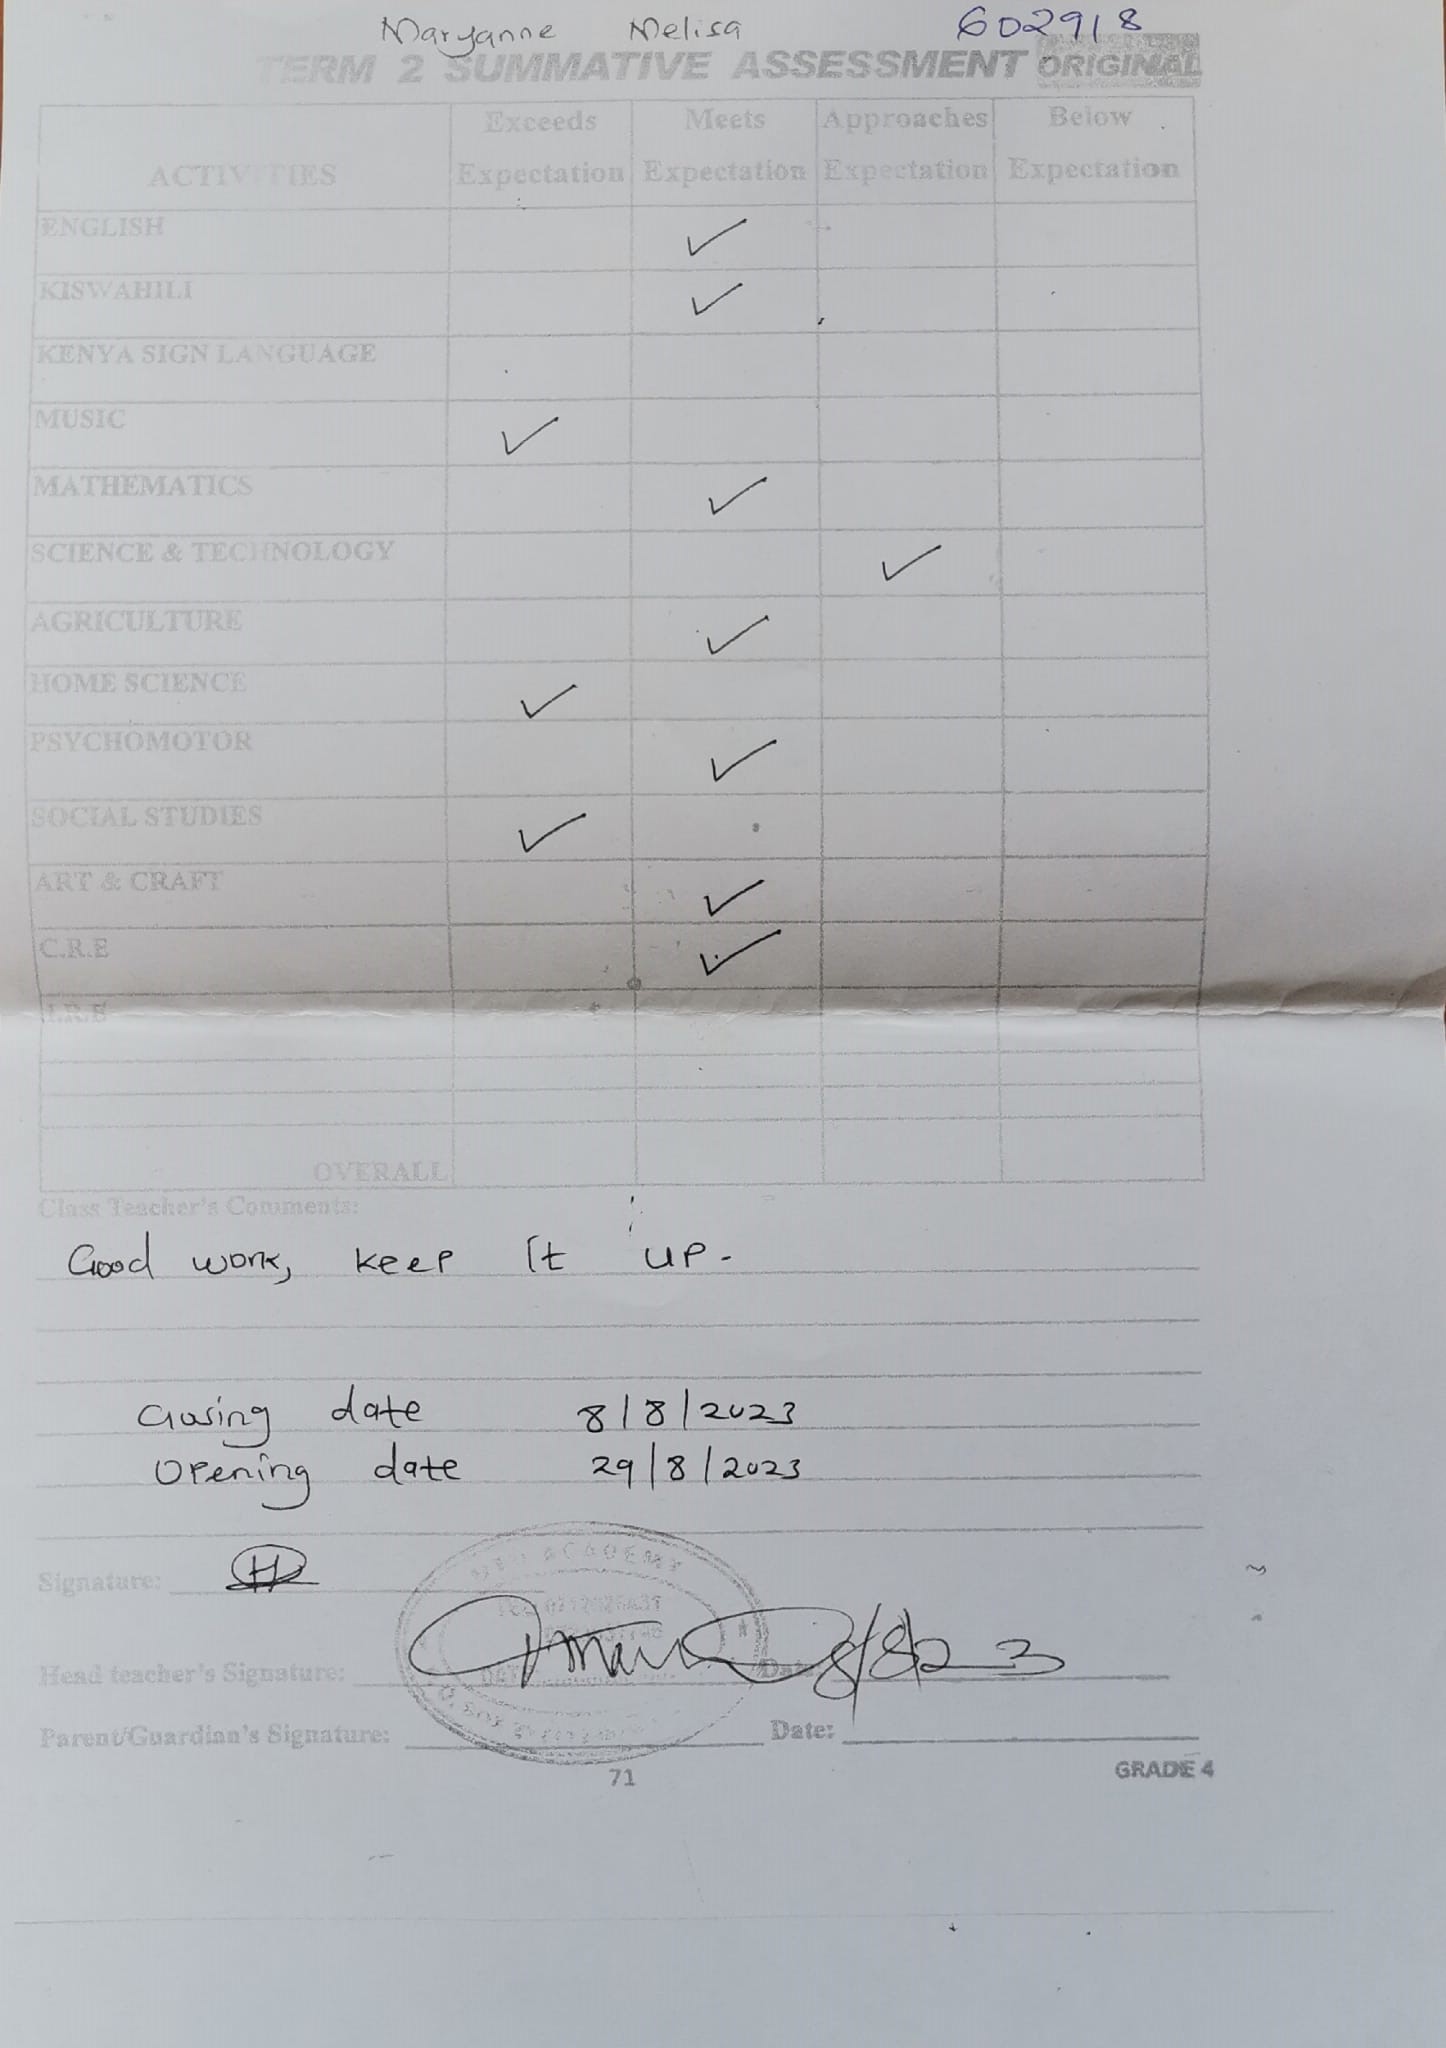 Maryanne Melisa 602918
TERM 2 SUMMATIVE ASSESSMENT ORIGINAL
ACTIVITIES Exceeds Expectation Meets Expectation Approaches Expectation Below Expectation
ENGLISH ✓
KISWAHILI ✓
KENYA SIGN LANGUAGE
MUSIC ✓
MATHEMATICS ✓
SCIENCE & TECHNOLOGY ✓
AGRICULTURE ✓
HOME SCIENCE ✓
PSYCHOMOTOR ✓
SOCIAL STUDIES ✓
ART & CRAFT ✓
C.R.E ✓
I.R.E
OVERALL
Class Teacher's Comments:
Good work, keep It up.
Closing date 8/8/2023
Opening date 29/8/2023
Signature:
ACADEMY
Head teacher's Signature: Date: 8/8/23
Parent/Guardian's Signature: Date:
71 GRADE 4